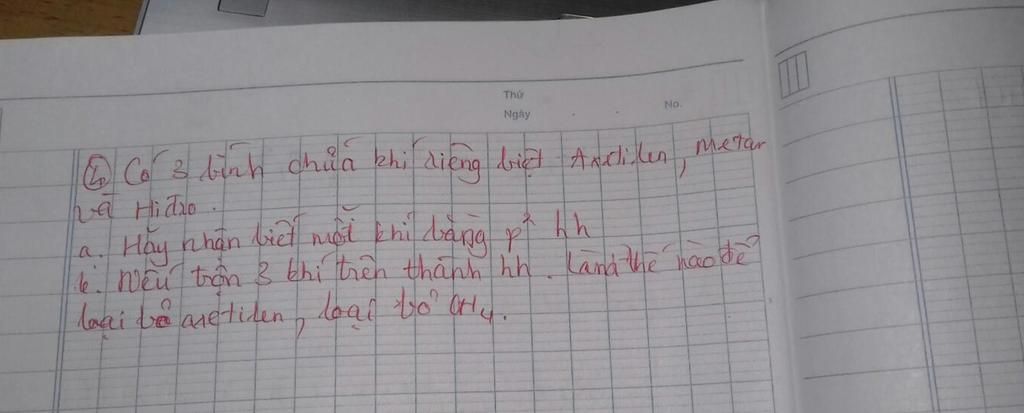 Thứ
Ngày No.
④ Có 3 bình chứa khí riêng biệt Axetilen, metan
và Hiđro.
a. Hãy nhận biết mỗi khí bằng p² hh
b. Nếu trộn 3 khí trên thành hh. Làm thế nào để
loại bỏ axetilen, loại bỏ CH4.